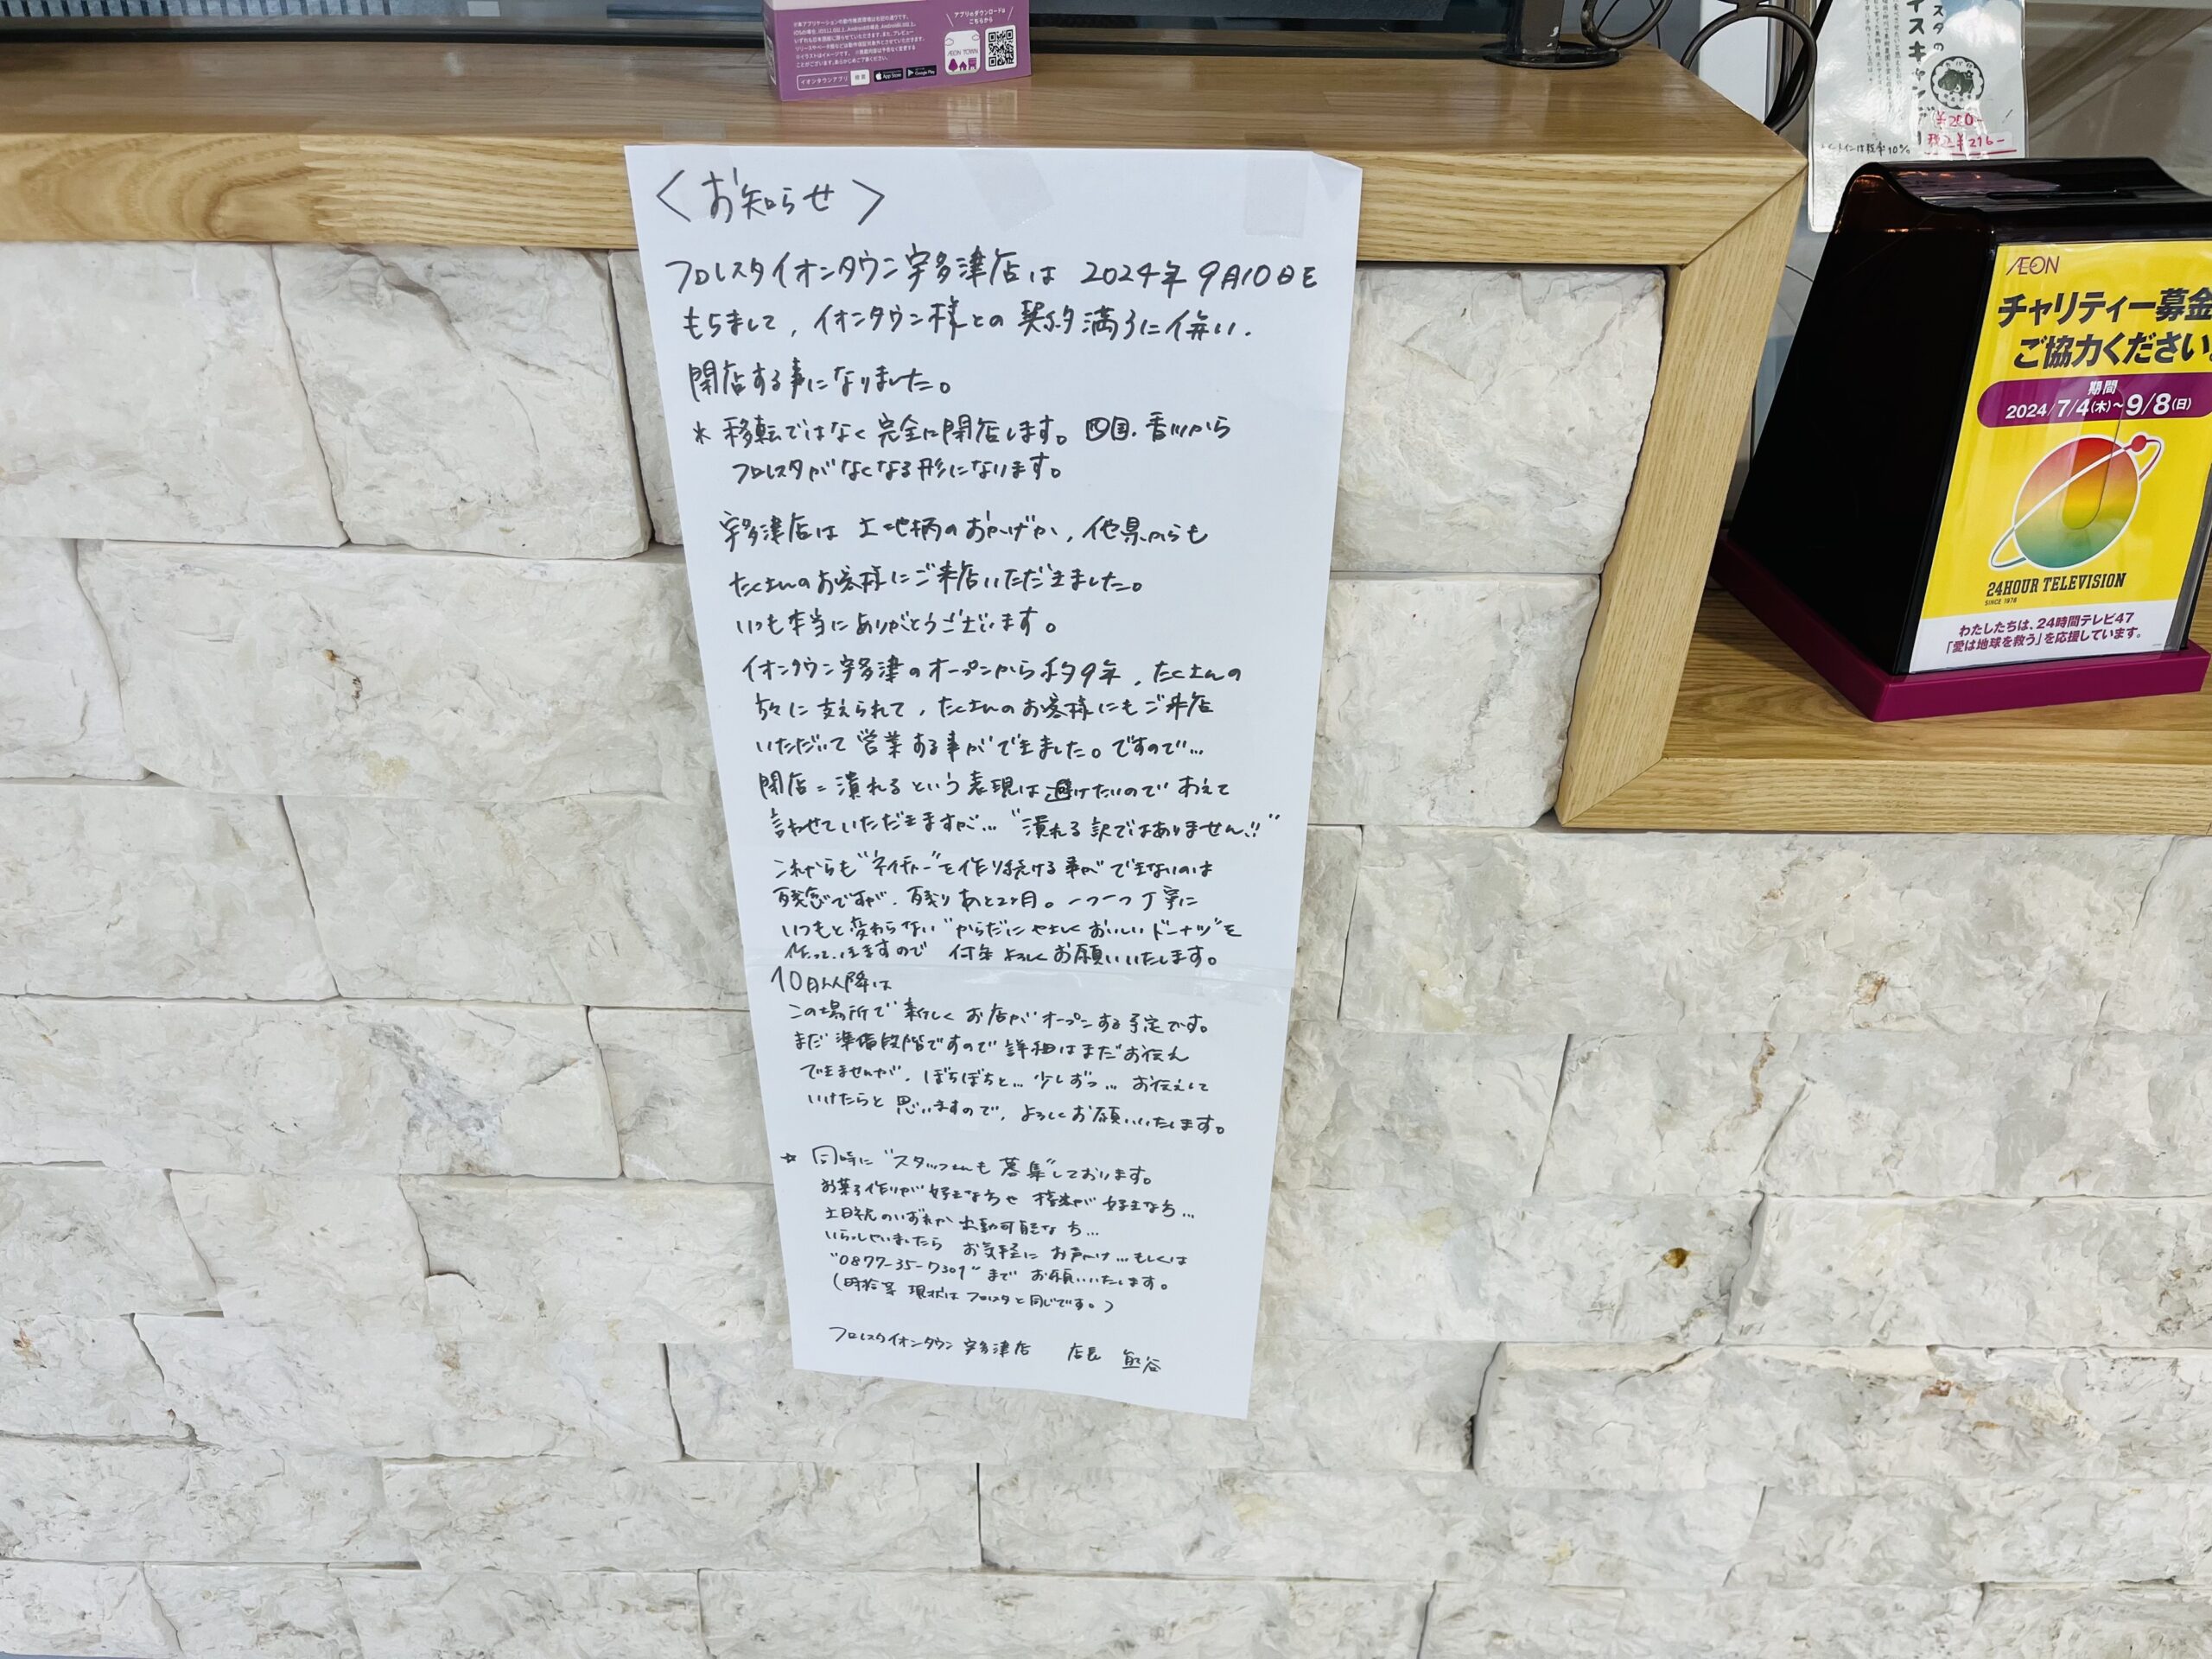 アプリのダウンロードは
こちらから
ÆON TOWN
イオンタウンアプリ
検索
App Store
Google Play
〈お知らせ〉
フロレスタイオンタウン宇多津店は 2024年9月10日を
もちまして、イオンタウン様との契約満了に伴い、
閉店する事になりました。
* 移転ではなく完全に閉店します。四国、香川から
フロレスタがなくなる形になります。
宇多津店は 土地柄のおかげか、他県からも
たくさんのお客様にご来店いただきました。
いつも本当にありがとうございます。
イオンタウン宇多津のオープンから約9年、たくさんの
方々に支えられて、たくさんのお客様にもご来店
いただいて営業する事ができました。ですので…
閉店=潰れるという表現は避けたいので あえて
言わせていただきますが… "潰れる訳ではありません!!"
これからも"ネイチャー"を作り続ける事ができないのは
残念ですが、残りあと2ヶ月。一つ一つ丁寧に
いつもと変わらない"からだにやさしくおいしいドーナツ"を
作っていきますので 何卒よろしくお願いいたします。
10月以降は
この場所で新しくお店がオープンする予定です。
まだ準備段階ですので詳細はまだお伝え
できませんが、ぼちぼちと… 少しずつ… お伝えして
いけたらと思いますので、よろしくお願いいたします。
☆ 同時に"スタッフさんも募集"しております。
お菓子作りが好きな方や 接客が好きな方…
土日祝のいずれか出勤可能な方…
いらっしゃいましたら お気軽にお声かけ… もしくは
"0877-35-7309"まで お願いいたします。
(時給等 現状はフロレスタと同じです。)
フロレスタイオンタウン宇多津店 店長 熊谷
スタの
イスキャンデー
¥200-
税込¥216-
イートインは税率10%
ÆON
チャリティー募金
ご協力ください。
期間
2024/7/4(木)~9/8(日)
24HOUR TELEVISION
SINCE 1978
わたしたちは、24時間テレビ47
「愛は地球を救う」を応援しています。